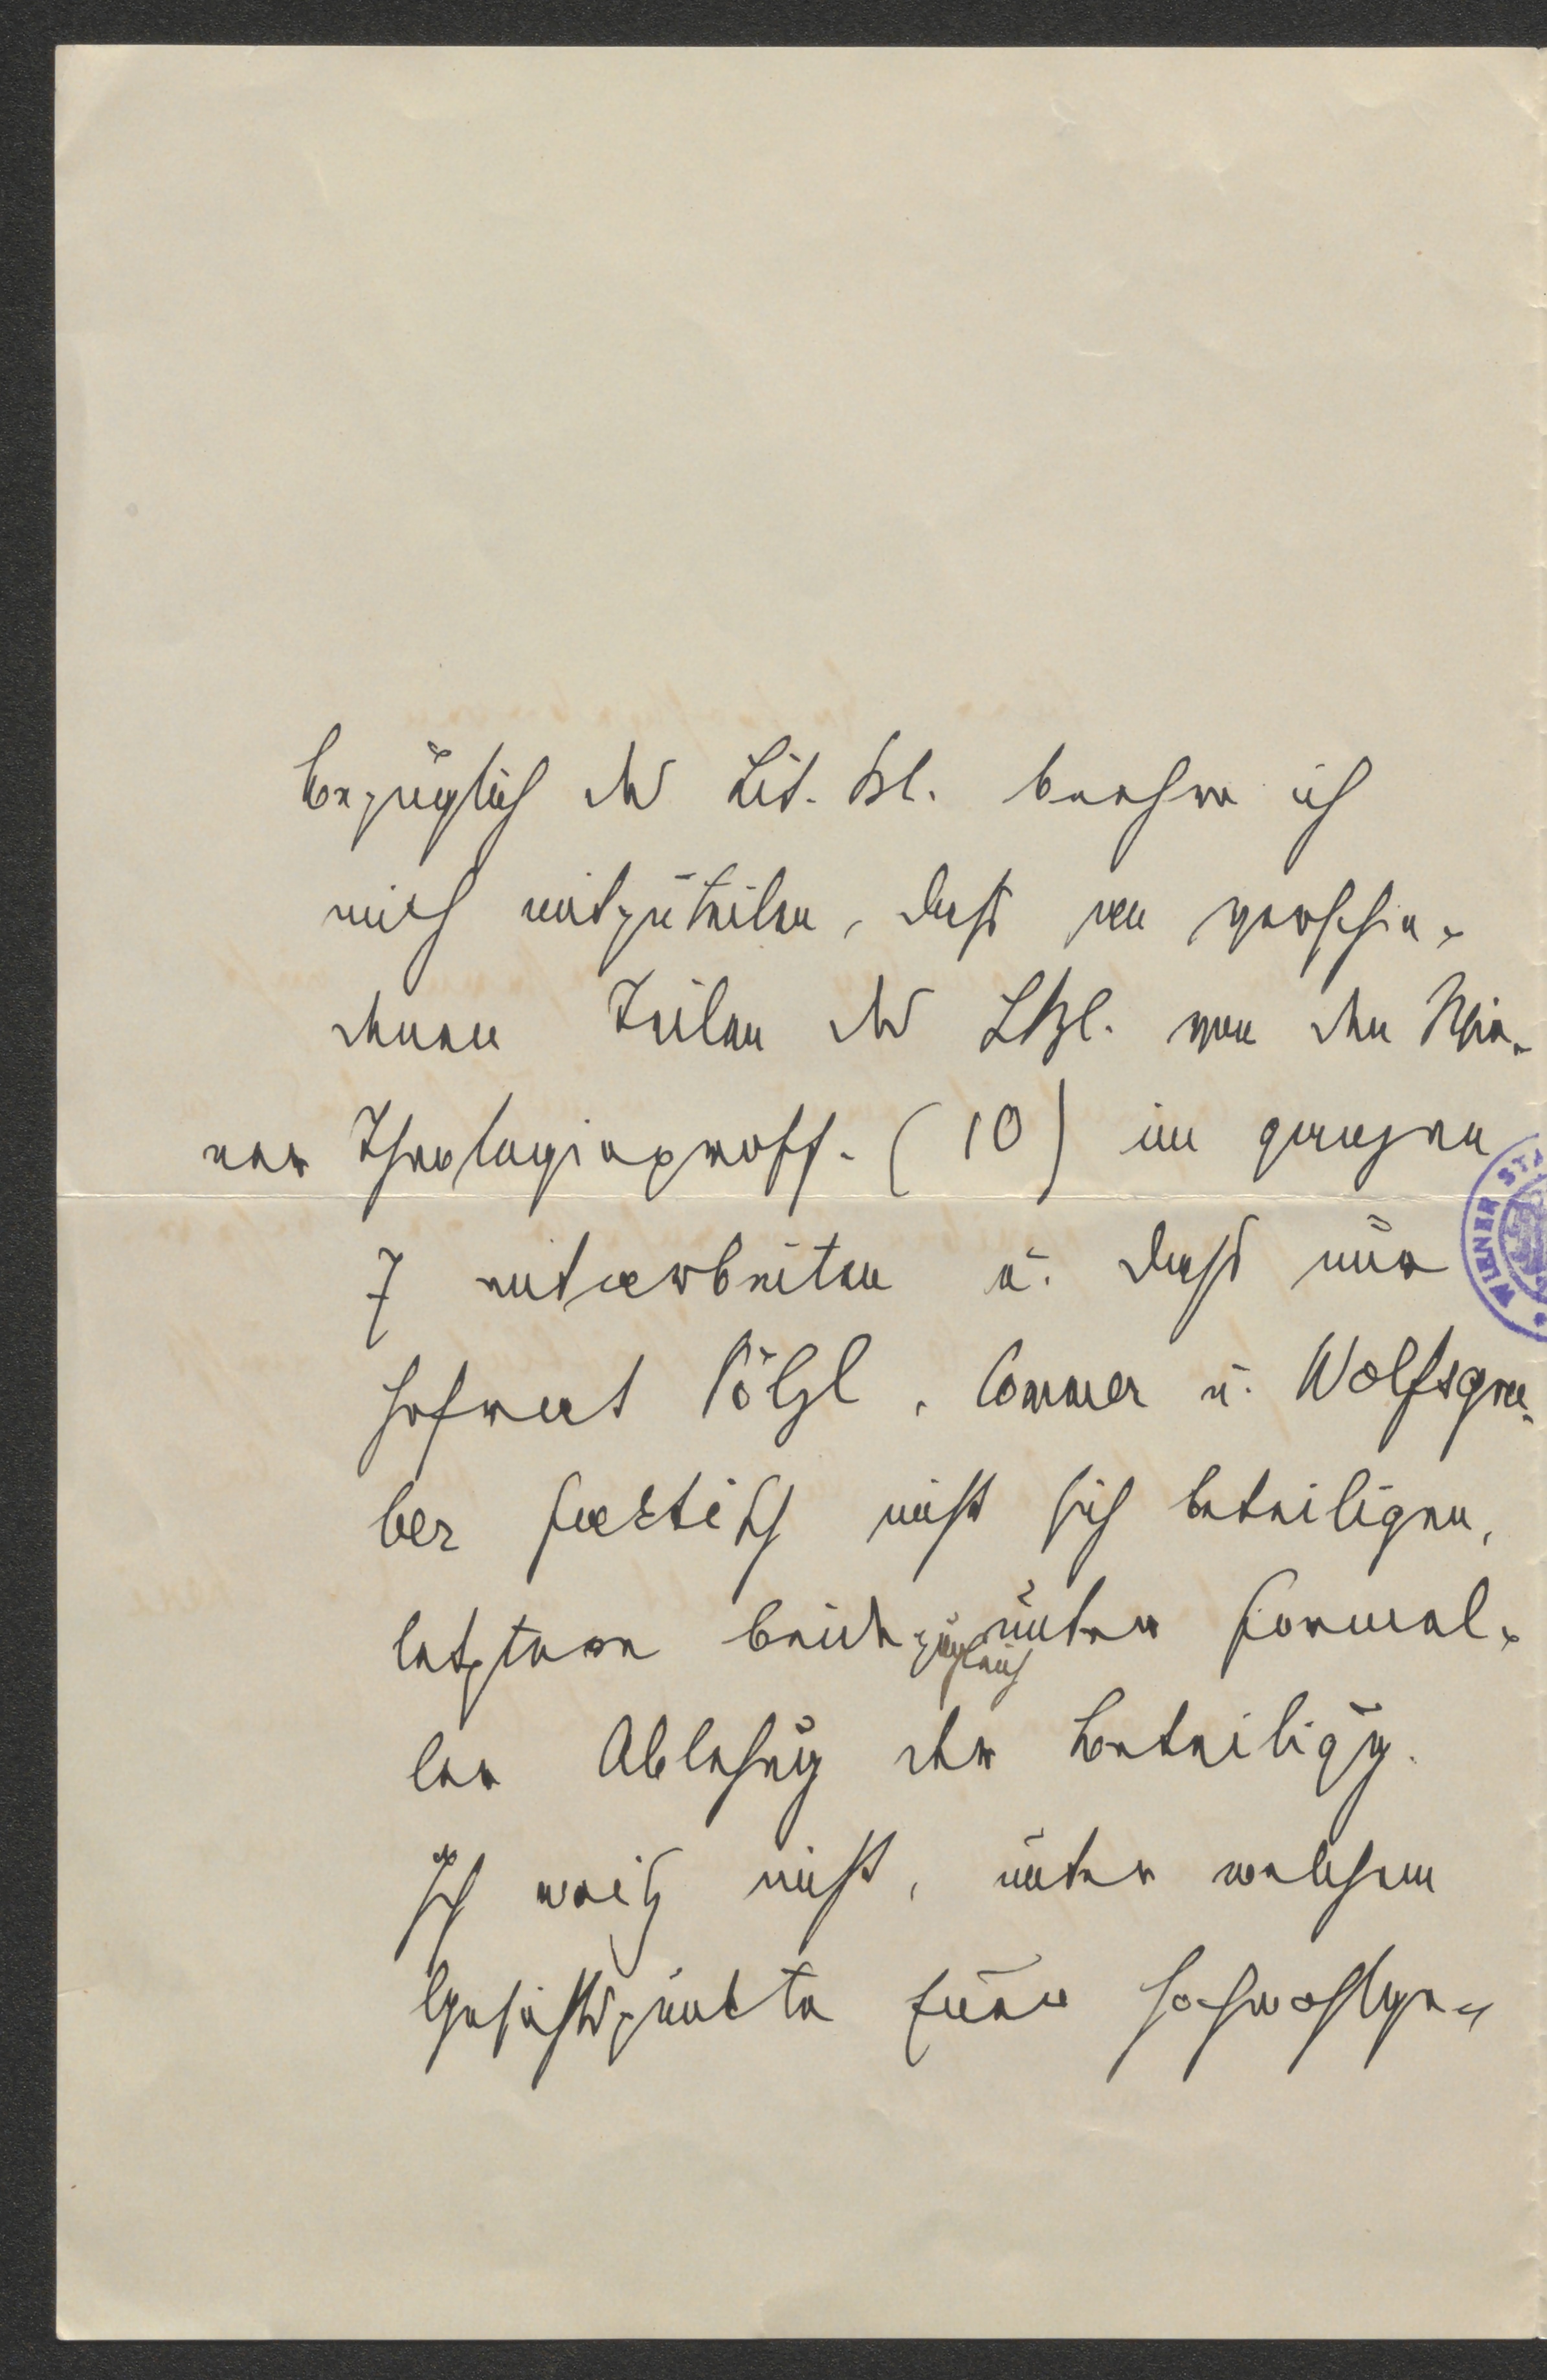 bezüglich des Lit. Bl. beehre ich
mich mitzuteilen, dass an verschie-
denen Teilen des LBl. von den Wie-
ner Theologieproff. (10) im ganzen
7 mitarbeiten u. dass nur
Hofrat Pölzl, Commer u. Wolfsgru-
ber factisch nicht sich beteiligen,
letztere beide zugleich unter formel-
ler Ablehng der Beteiligg.
Ich weiß nicht, unter welchem
Gesichtspunkte Euer Hochwohlge-
WIENER STA